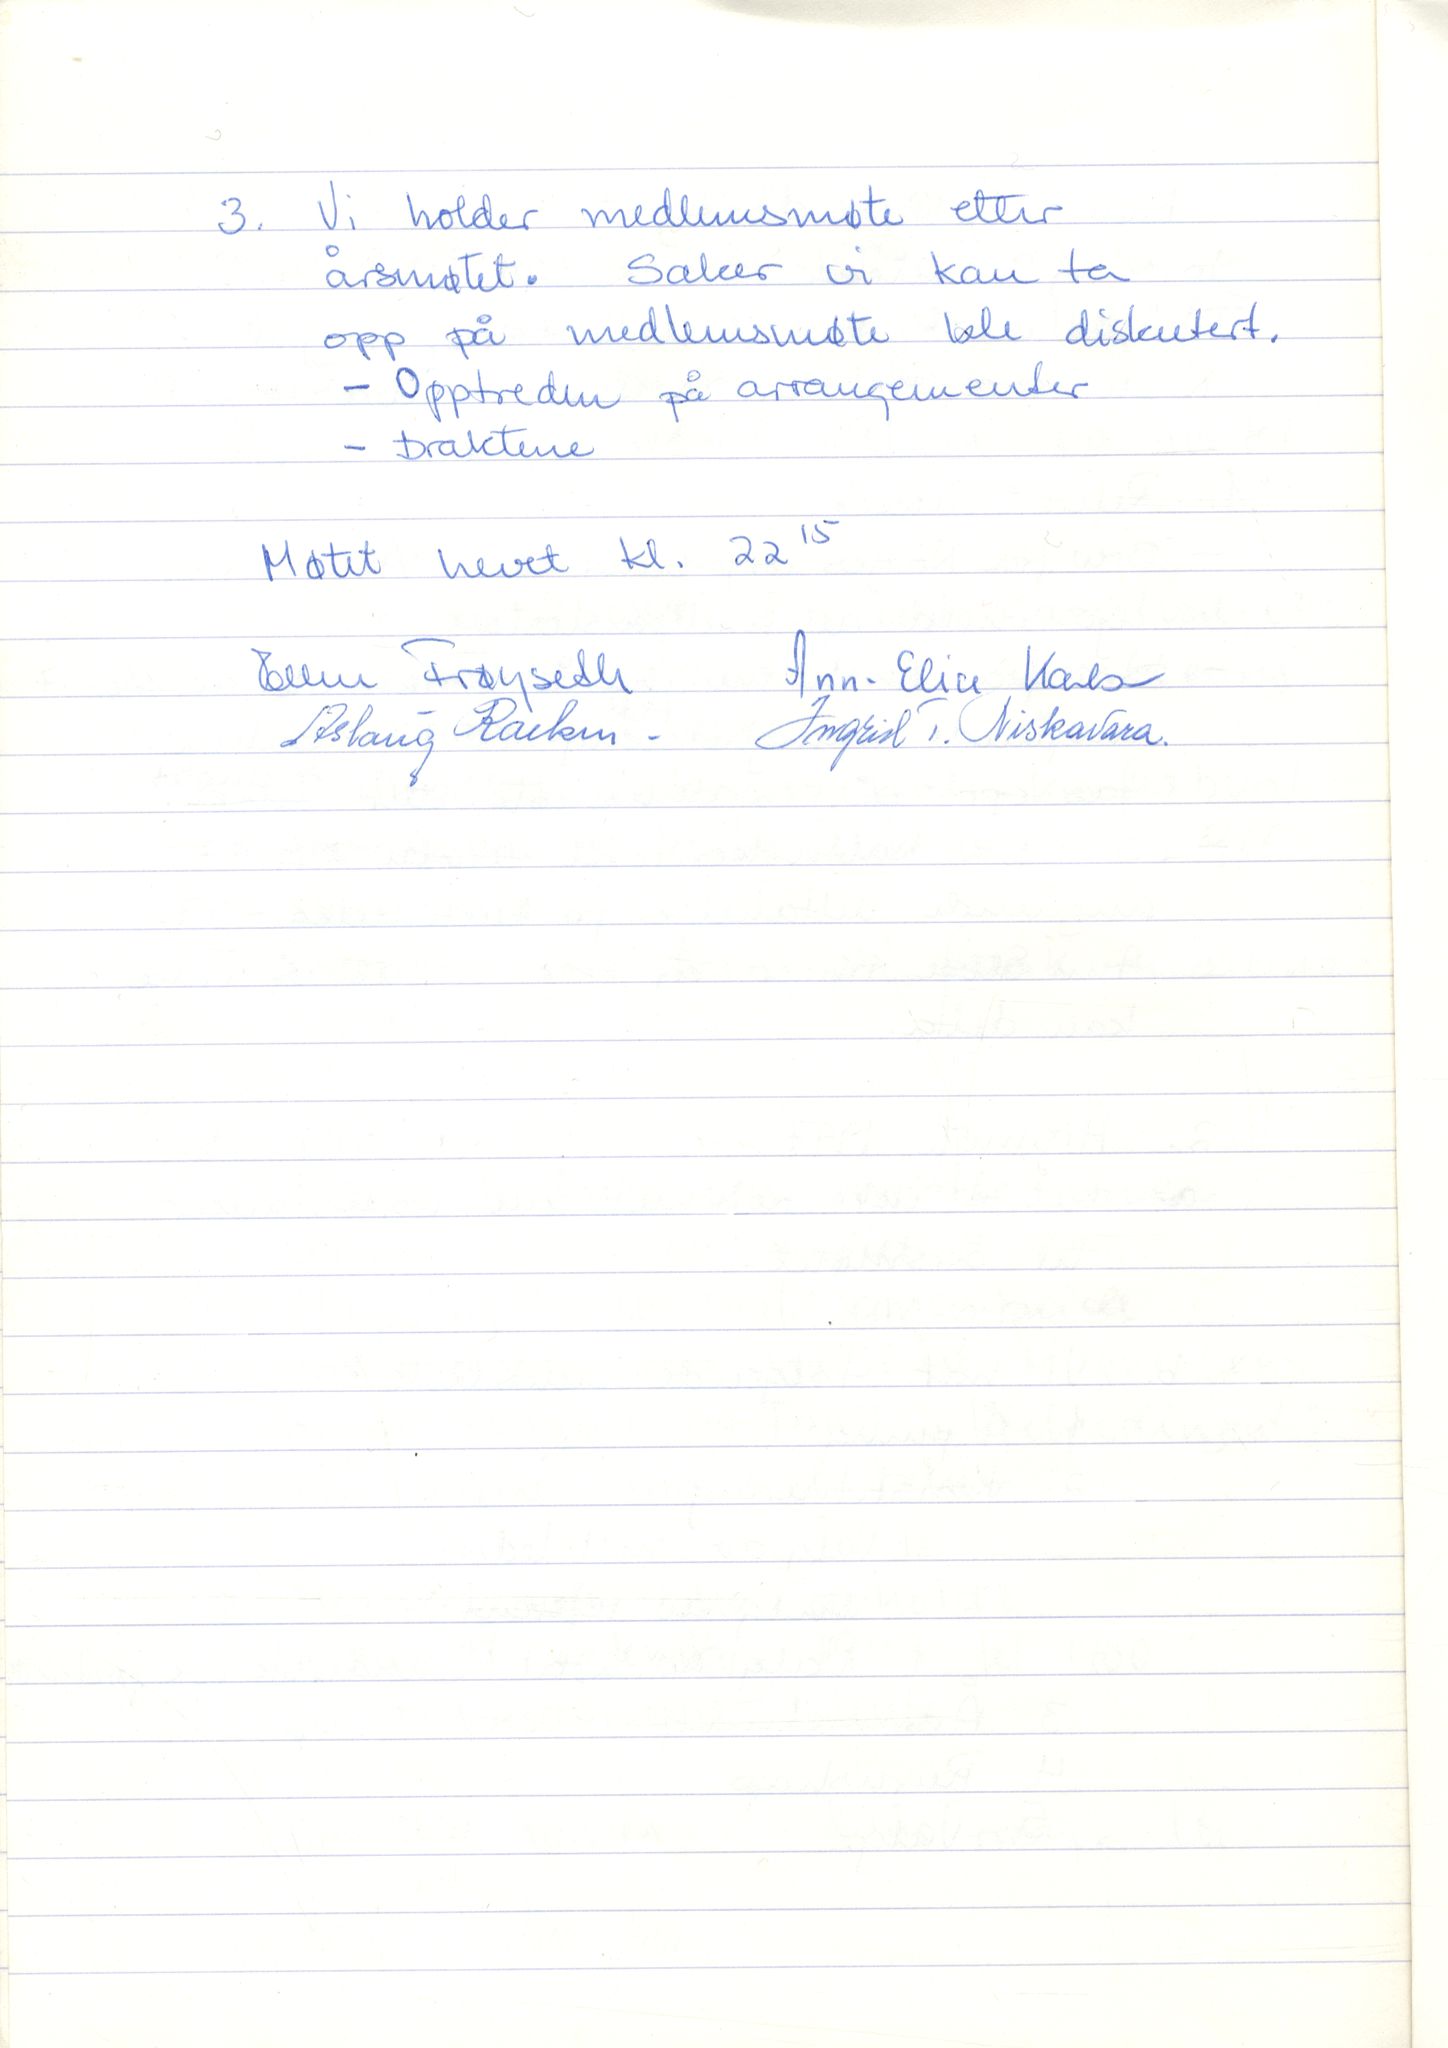 3. Vi holder medlemsmøte etter
årsmøtet. Saker vi kan ta
opp på medlemsmøte ble diskutert.
- Opptreden på arrangementer
- Draktene
Møtet hevet kl. 22 15
Ellen Frøyseth Ann-Elice
Aslaug Ingrid T. Niskavara.